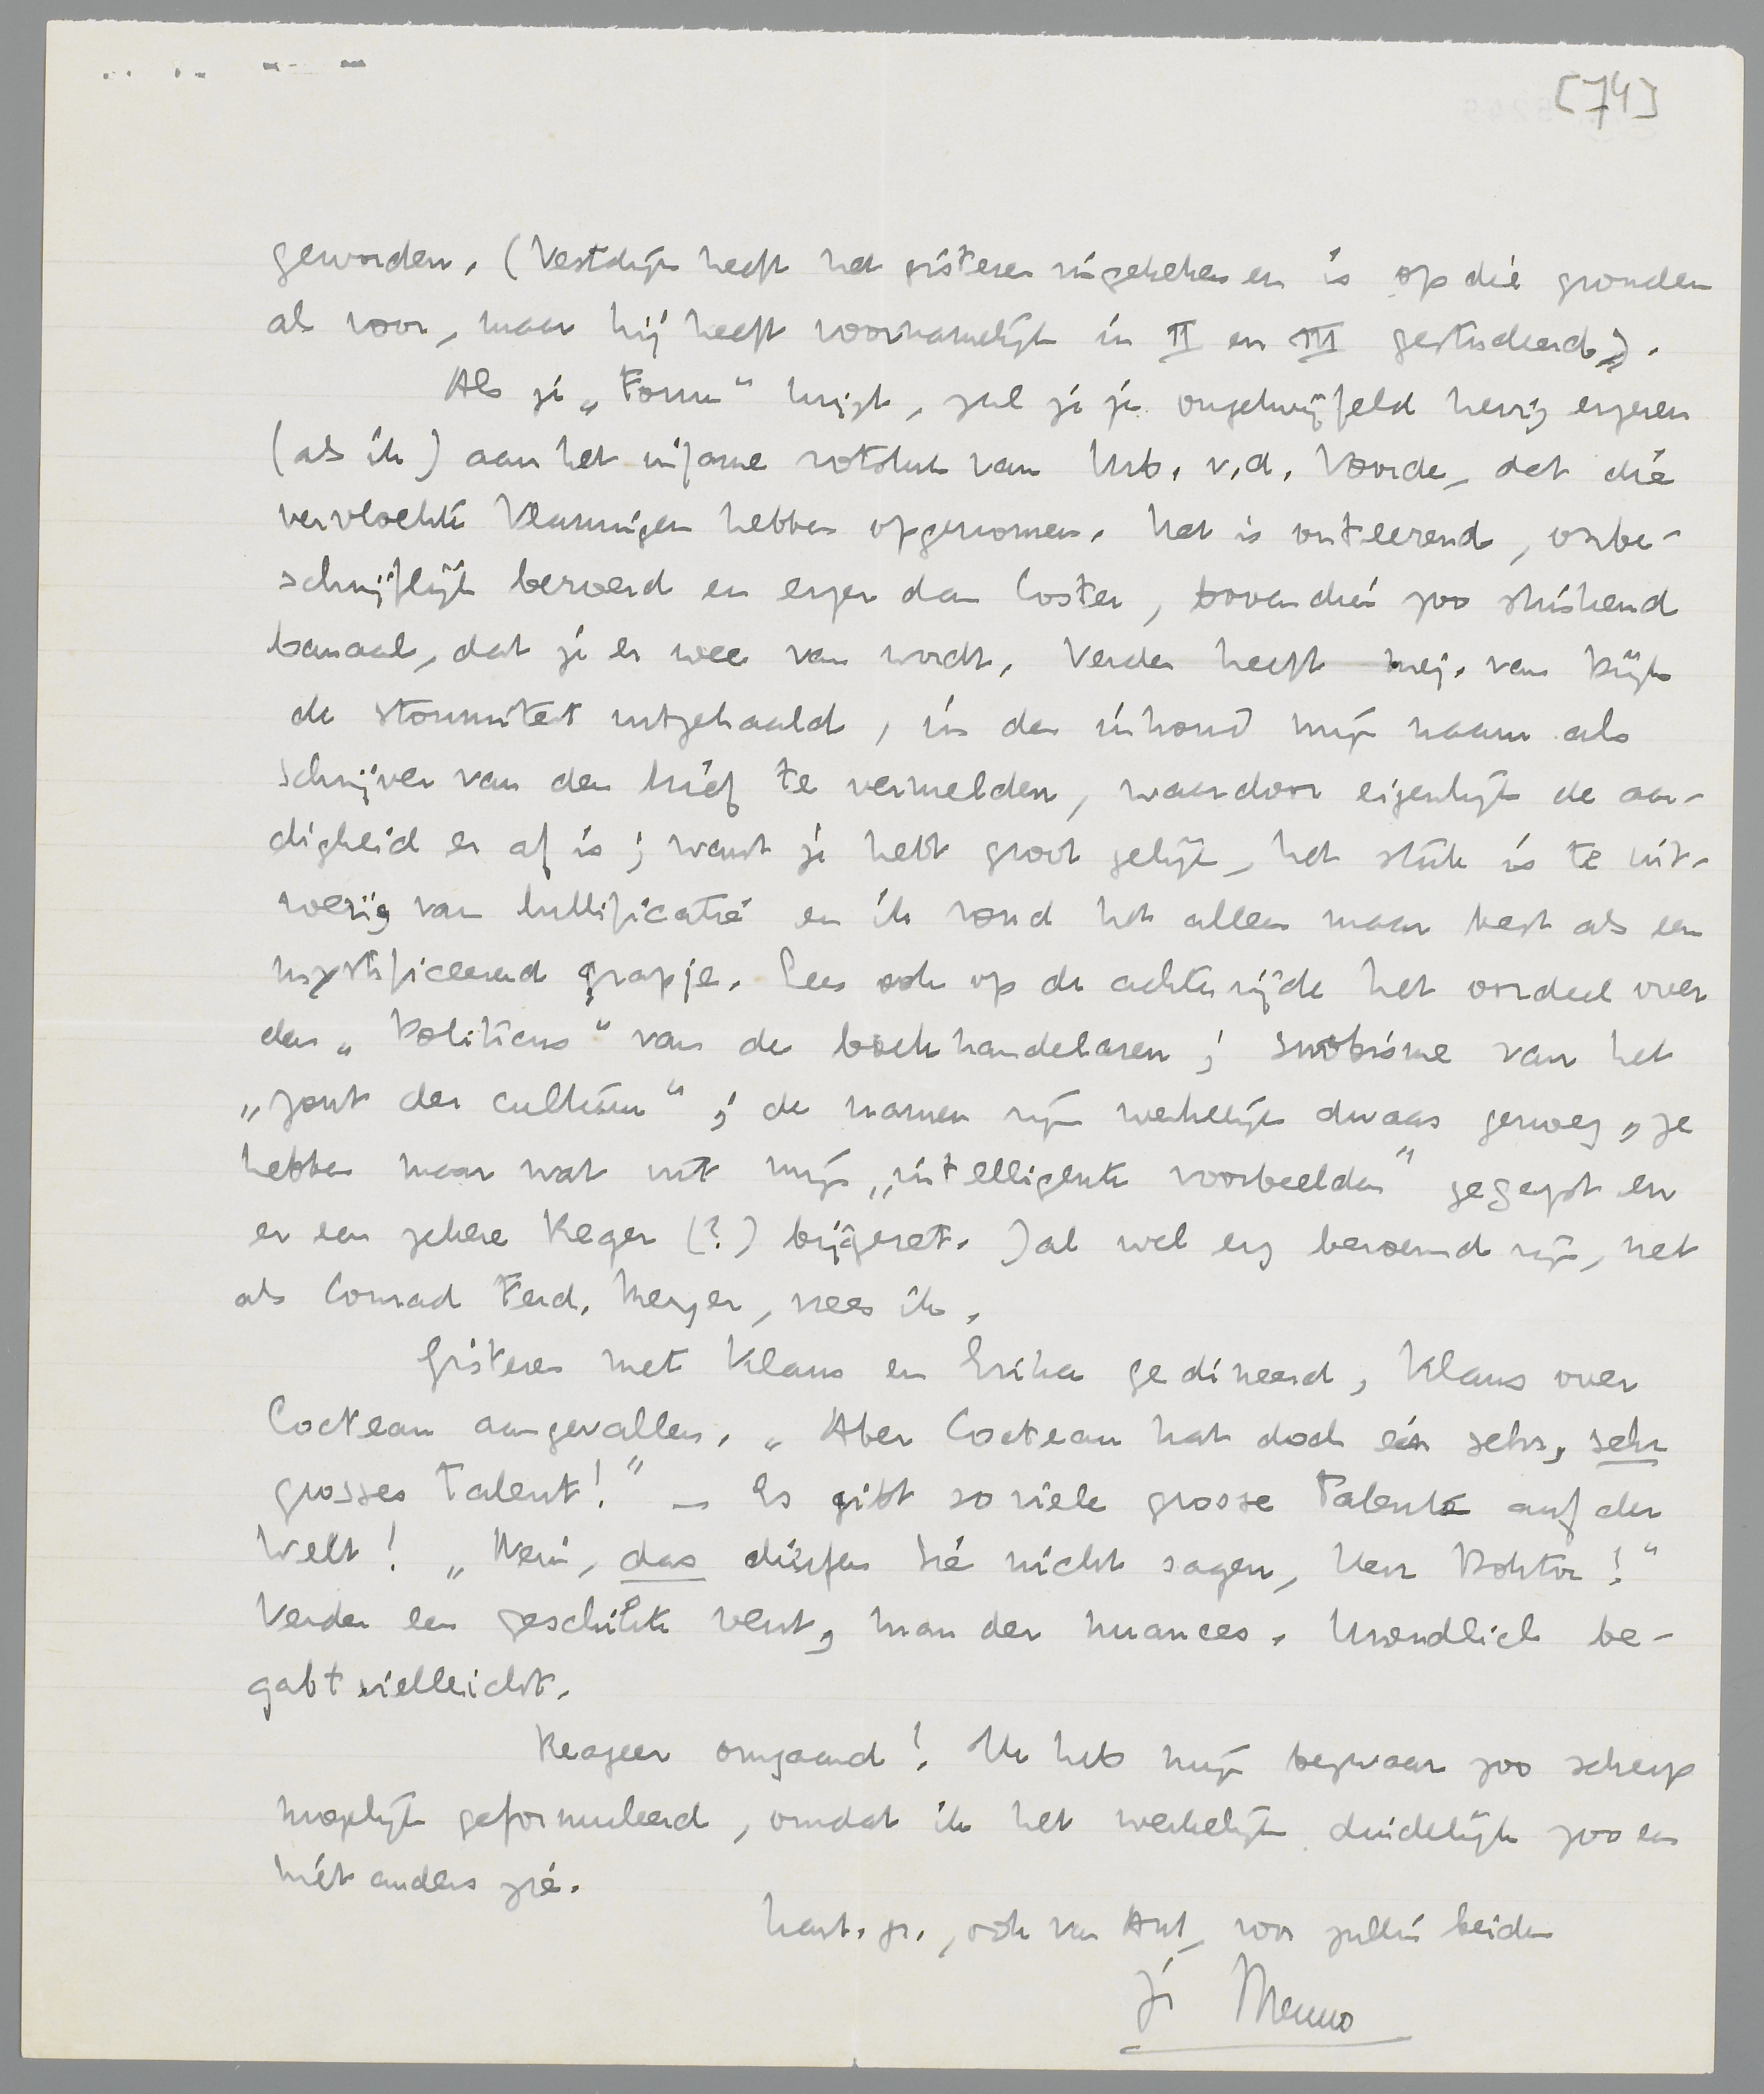 [74]
geworden. (Vestdijk heeft het gisteren ingekeken en is op die gronden
al voor, maar hij heeft voornamelijk in II en III gestudeerd).
Als je „Forum“ krijgt, zal je je ongetwijfeld hevig ergeren
(als ik) aan het infame rotstuk van Urb. v.d. Voorde, dat die
vervloekte Vlamingen hebben opgenomen. Het is onteerend, onbe-
schrijflijk beroerd en erger dan Coster, bovendien zoo stinkend
banaal, dat je er wee van wordt. Verder heeft mej. van Dijk
de stommiteit uitgehaald, in den inhoud mijn naam als
schrijver van den brief te vermelden, waardoor eigenlijk de aar-
digheid er af is; want je hebt groot gelijk, het stuk is te uit-
voerig van bullificatie en ik vond het alleen maar best als een
mystificeerend grapje. Lees ook op de achterzijde het oordeel over
den „Politicus“ van de boekhandelaren; snobisme van het
„zout der cultuur“; de namen zijn werkelijk dwaas genoeg, ze
hebben maar wat uit mijn „intelligente voorbeelden“ gegapt en
er een zekere Reger (?) bijgezet. Zal wel erg beroemd zijn, net
als Conrad Ferd. Meyer, vrees ik.
Gisteren met Klaus en Erika gedineerd, Klaus over
Cocteau aangevallen. „Aber Cocteau hat doch ein sehr, sehr
grosses Talent!“ – Es gibt so viele grosse Talente auf der
Welt! „Nein, das dürfen Sie nicht sagen, Herr Doktor!“
Verder een geschikte vent, man der nuances. Unendlich be-
gabt vielleicht.
Reageer omgaand! Ik heb mijn bezwaar zoo scherp
mogelijk geformuleerd, omdat ik het werkelijk duidelijk zoo en
niet anders zie.
hart. gr., ook van Ant, voor jullie beiden
je Menno